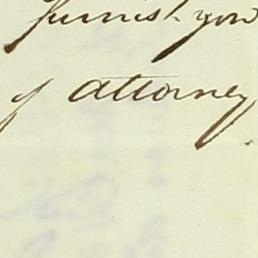 furnish you
of attorney